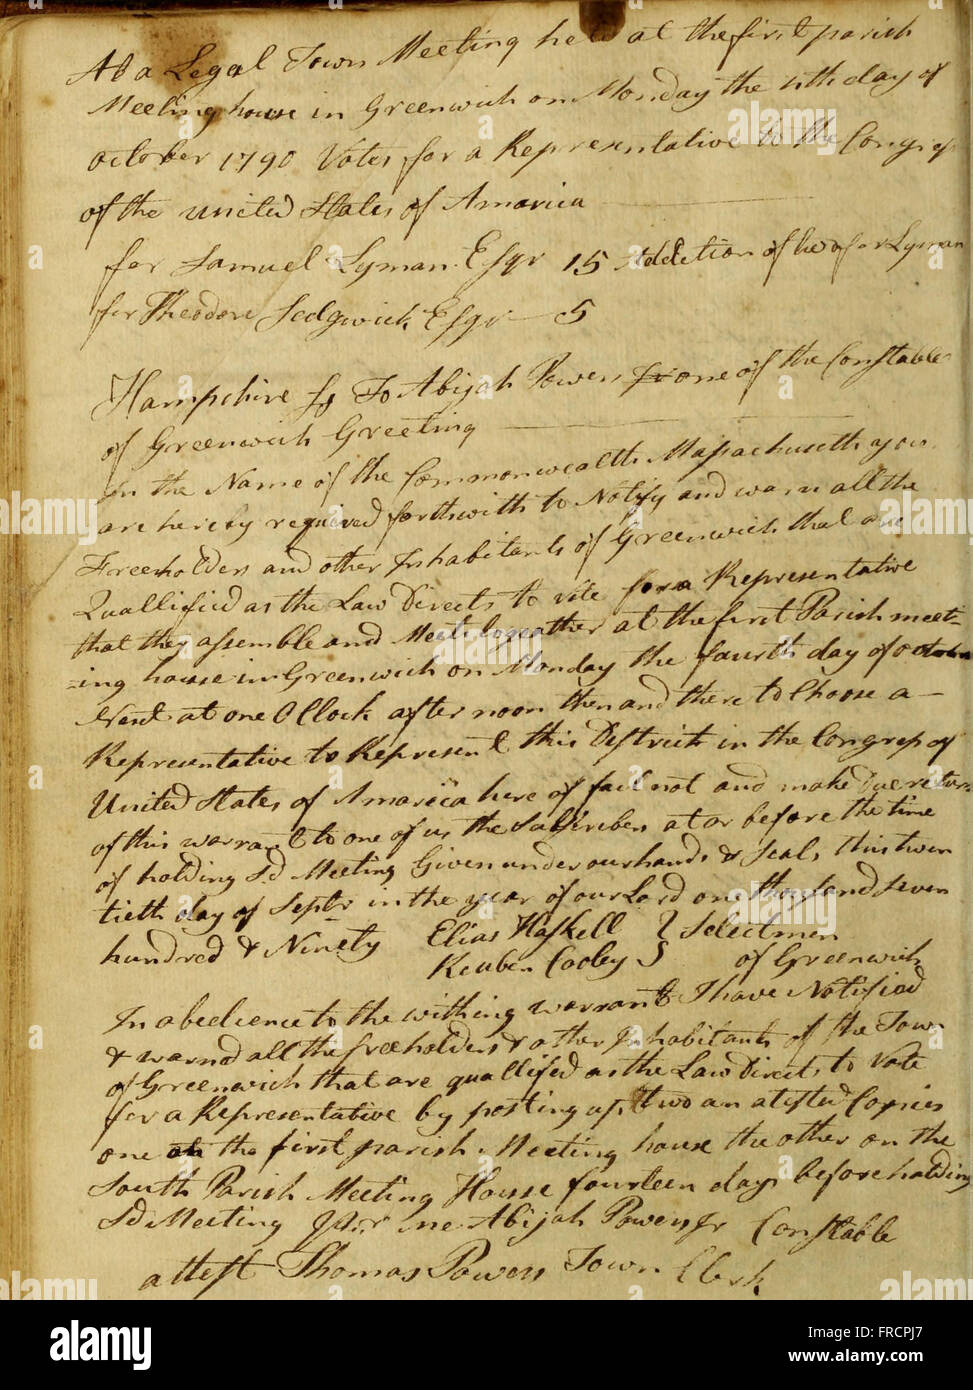 At a Legal Town Meeting held at the first parish
Meeting house in Greenwich on Monday the 4th day of
october 1790 Votes for a Representative to the Congress
of the united States of America
for Samuel Lyman Esqr 15 Addition of two for Lyman
for Theodore Sedgwick Esqr — 5
Hampshire ss To Abijah Powers one of the Constable
of Greenwich Greeting
In the Name of the Commonwealth Massachusetts you
are hereby required forthwith to Notify and warn all the
Freeholders and other Inhabitants of Greenwich that are
Quallified as the Law Directs to vote for a Representative
that they assemble and Meet togeather at the first Parish meet-
-ing house in Greenwich on Monday the fourth day of october
Next at one O Clock after noon then and there to Choose a —
Representative to Represent this Destrict in the Congress of
United States of Amarica here of fail not and make Due return
of this warrant to one of us the Subscribers at or before the time
of holding Sd Meeting Given under our hands & Seals this twen
tieth day of Septr in the year of our Lord one thousand seven
hundred & Ninety Elias Haskell } Selectmen
Reuben Cooley } of Greenwich
In abedience to the withing warrant I have Notified
& warnd all the freeholders & other Inhabitants of the Town
of Greenwich that are quallifed as the Law Directs to Vote
for a Representative by posting up two an atested Copies
one at the first parish Meeting house the other on the
South Parish Meeting House fourteen days before holding
Sd Meeting pr me Abijah Powers Jr Constable
attest Thomas Powers Town Clerk
alamy
Image ID: FRCPJ7
www.alamy.com